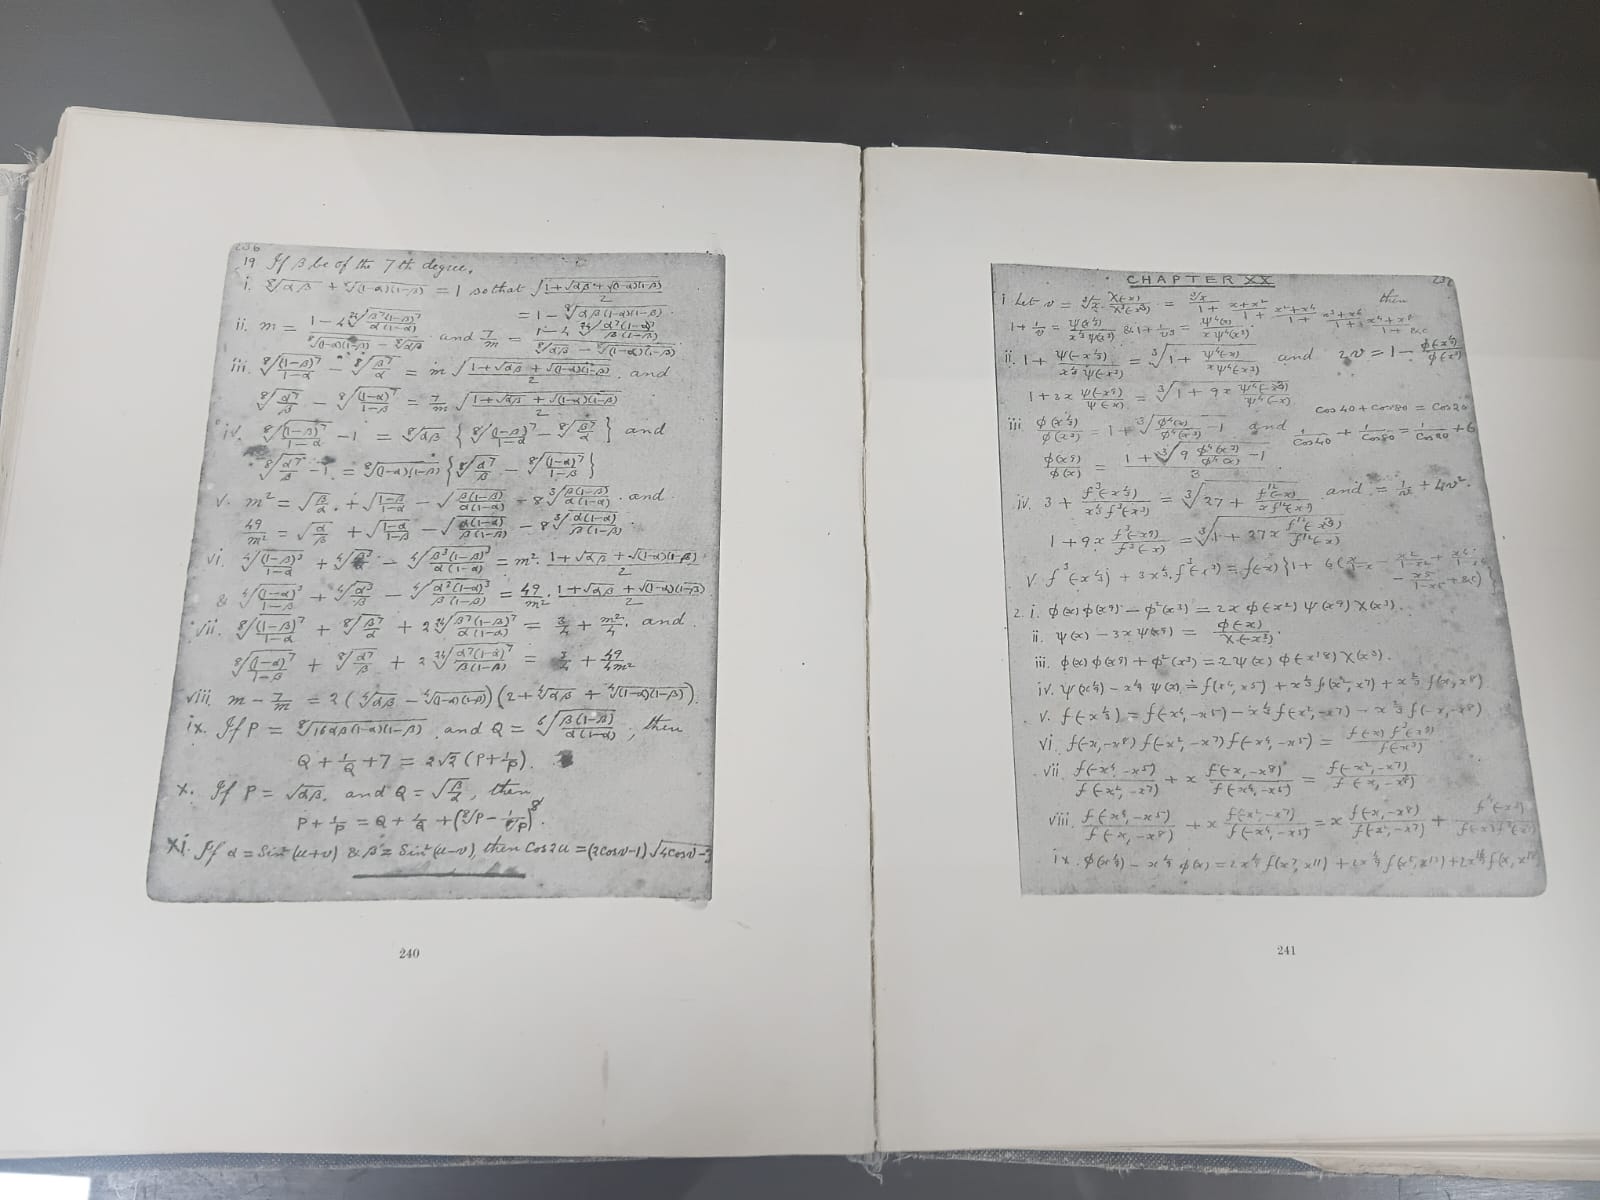 236
19 If β be of the 7th degree,
i. ⁸√(αβ) + ⁸√((1-α)(1-β)) = 1 so that √((1+√(αβ)+√((1-α)(1-β)))/2)
= 1 - ⁸√(αβ(1-α)(1-β)).
ii. m = (1-4 ²⁴√(β⁷(1-β)⁷/(α(1-α))))/(⁸√((1-α)(1-β)) - ⁸√(αβ)) and 7/m = (1-4 ²⁴√(α⁷(1-α)⁷/(β(1-β))))/(⁸√(αβ) - ⁸√((1-α)(1-β)))
iii. ⁸√((1-β)⁷/(1-α)) - ⁸√(β⁷/α) = m √((1+√(αβ)+√((1-α)(1-β)))/2) and
⁸√(α⁷/β) - ⁸√((1-α)⁷/(1-β)) = 7/m √((1+√(αβ)+√((1-α)(1-β)))/2)
iv. ⁸√((1-β)⁷/(1-α)) - 1 = ⁸√(αβ) {⁸√((1-β)⁷/(1-α)) - ⁸√(β⁷/α)} and
⁸√(α⁷/β) - 1 = ⁸√((1-α)(1-β)) {⁸√(α⁷/β) - ⁸√((1-α)⁷/(1-β))}
v. m² = √(β/α) + √((1-β)/(1-α)) - √(β(1-β)/(α(1-α))) - 8 ³√(β(1-β)/(α(1-α))). and
49/m² = √(α/β) + √((1-α)/(1-β)) - √(α(1-α)/(β(1-β))) - 8 ³√(α(1-α)/(β(1-β))).
vi. ⁴√((1-β)³/(1-α)) + ⁴√(β³/α) - ⁴√(β³(1-β)³/(α(1-α))) = m². (1+√(αβ)+√((1-α)(1-β)))/2
& ⁴√((1-α)³/(1-β)) + ⁴√(α³/β) - ⁴√(α³(1-α)³/(β(1-β))) = 49/m². (1+√(αβ)+√((1-α)(1-β)))/2
vii. ⁸√((1-β)⁷/(1-α)) + ⁸√(β⁷/α) + 2 ²⁴√(β⁷(1-β)⁷/(α(1-α))) = 3/4 + m²/4. and
⁸√((1-α)⁷/(1-β)) + ⁸√(α⁷/β) + 2 ²⁴√(α⁷(1-α)⁷/(β(1-β))) = 3/4 + 49/4m²
viii. m - 7/m = 2(⁸√(αβ) - ⁸√((1-α)(1-β)))(2 + ⁴√(αβ) + ⁴√((1-α)(1-β))).
ix. If P = ⁸√(16αβ(1-α)(1-β)) and Q = ⁶√(β(1-β)/(α(1-α))), then
Q + 1/Q + 7 = 2√2 (P + 1/P).
x. If P = √(αβ), and Q = √(β/α), then
P + 1/P = Q + 1/Q + (⁸√P - 1/⁸√P)⁸.
xi. If α = Sin²(u+v) & β = Sin²(u-v), then Cos 2u = (2Cos v-1) √(4Cos v-3)
240
CHAPTER XX
i Let v = ³√x. χ(-x)/χ³(-x³) = ³√x/1+ x+x²/1+ x²+x⁴/1+ x³+x⁶/1+ x⁴+x⁸/1+ &c then
1+1/v = ψ(x^⅓)/(x^⅓ψ(x³)) & 1+1/v³ = ψ⁴(x)/(xψ⁴(x³)).
ii. 1 + ψ(-x^⅓)/(x^⅓ψ(-x³)) = ³√(1 + ψ⁴(-x)/(xψ⁴(-x³))) and 2v = 1 - φ(-x^⅓)/φ(-x³)
1+3x ψ(-x⁹)/ψ(-x) = ³√(1 + 9x ψ⁴(-x³)/ψ⁴(-x))
iii φ(x^⅓)/φ(x³) = 1 + ³√(φ⁴(x)/φ⁴(x³) - 1) and
Cos 40 + Cos 80 = Cos 20
1/Cos40 + 1/Cos80 = 1/Cos20 + 6
φ(x⁹)/φ(x) = (1 + ³√(9 φ⁴(x³)/φ⁴(x) - 1))/3
iv. 3 + f³(-x^⅓)/(x^⅓f³(-x³)) = ³√(27 + f¹²(-x)/(xf¹²(-x³))) and = 1/v + 4v².
1+9x f³(-x⁹)/f³(-x) = ³√(1 + 27x f¹²(-x³)/f¹²(-x))
v. f³(-x^⅓) + 3x^⅓. f³(-x³) = f(-x) {1 + 6(x/(1-x) - x²/(1-x²) + x⁴/(1-x⁴) - x⁵/(1-x⁵) + &c)}
2. i. φ(x) φ(x⁹) - φ²(x³) = 2x φ(-x²) ψ(x⁹) χ(x³).
ii. ψ(x) - 3x ψ(x⁹) = φ(-x)/χ(-x³).
iii. φ(x) φ(x⁹) + φ²(x³) = 2ψ(x) φ(-x¹⁸) χ(x³).
iv. ψ(x^1/9) - x^1/9 ψ(x) = f(x⁴, x⁵) + x^1/3 f(x², x⁷) + x^2/3 f(x, x⁸)
vi. f(-x,-x⁸) f(-x²,-x⁷) f(-x⁴,-x⁵) = f(-x) f³(-x⁹)/f(-x³).
vii. f(-x⁴,-x⁵)/f(-x²,-x⁷) + x f(-x,-x⁸)/f(-x⁴,-x⁵) = f(-x²,-x⁷)/f(-x,-x⁸)
viii.
241